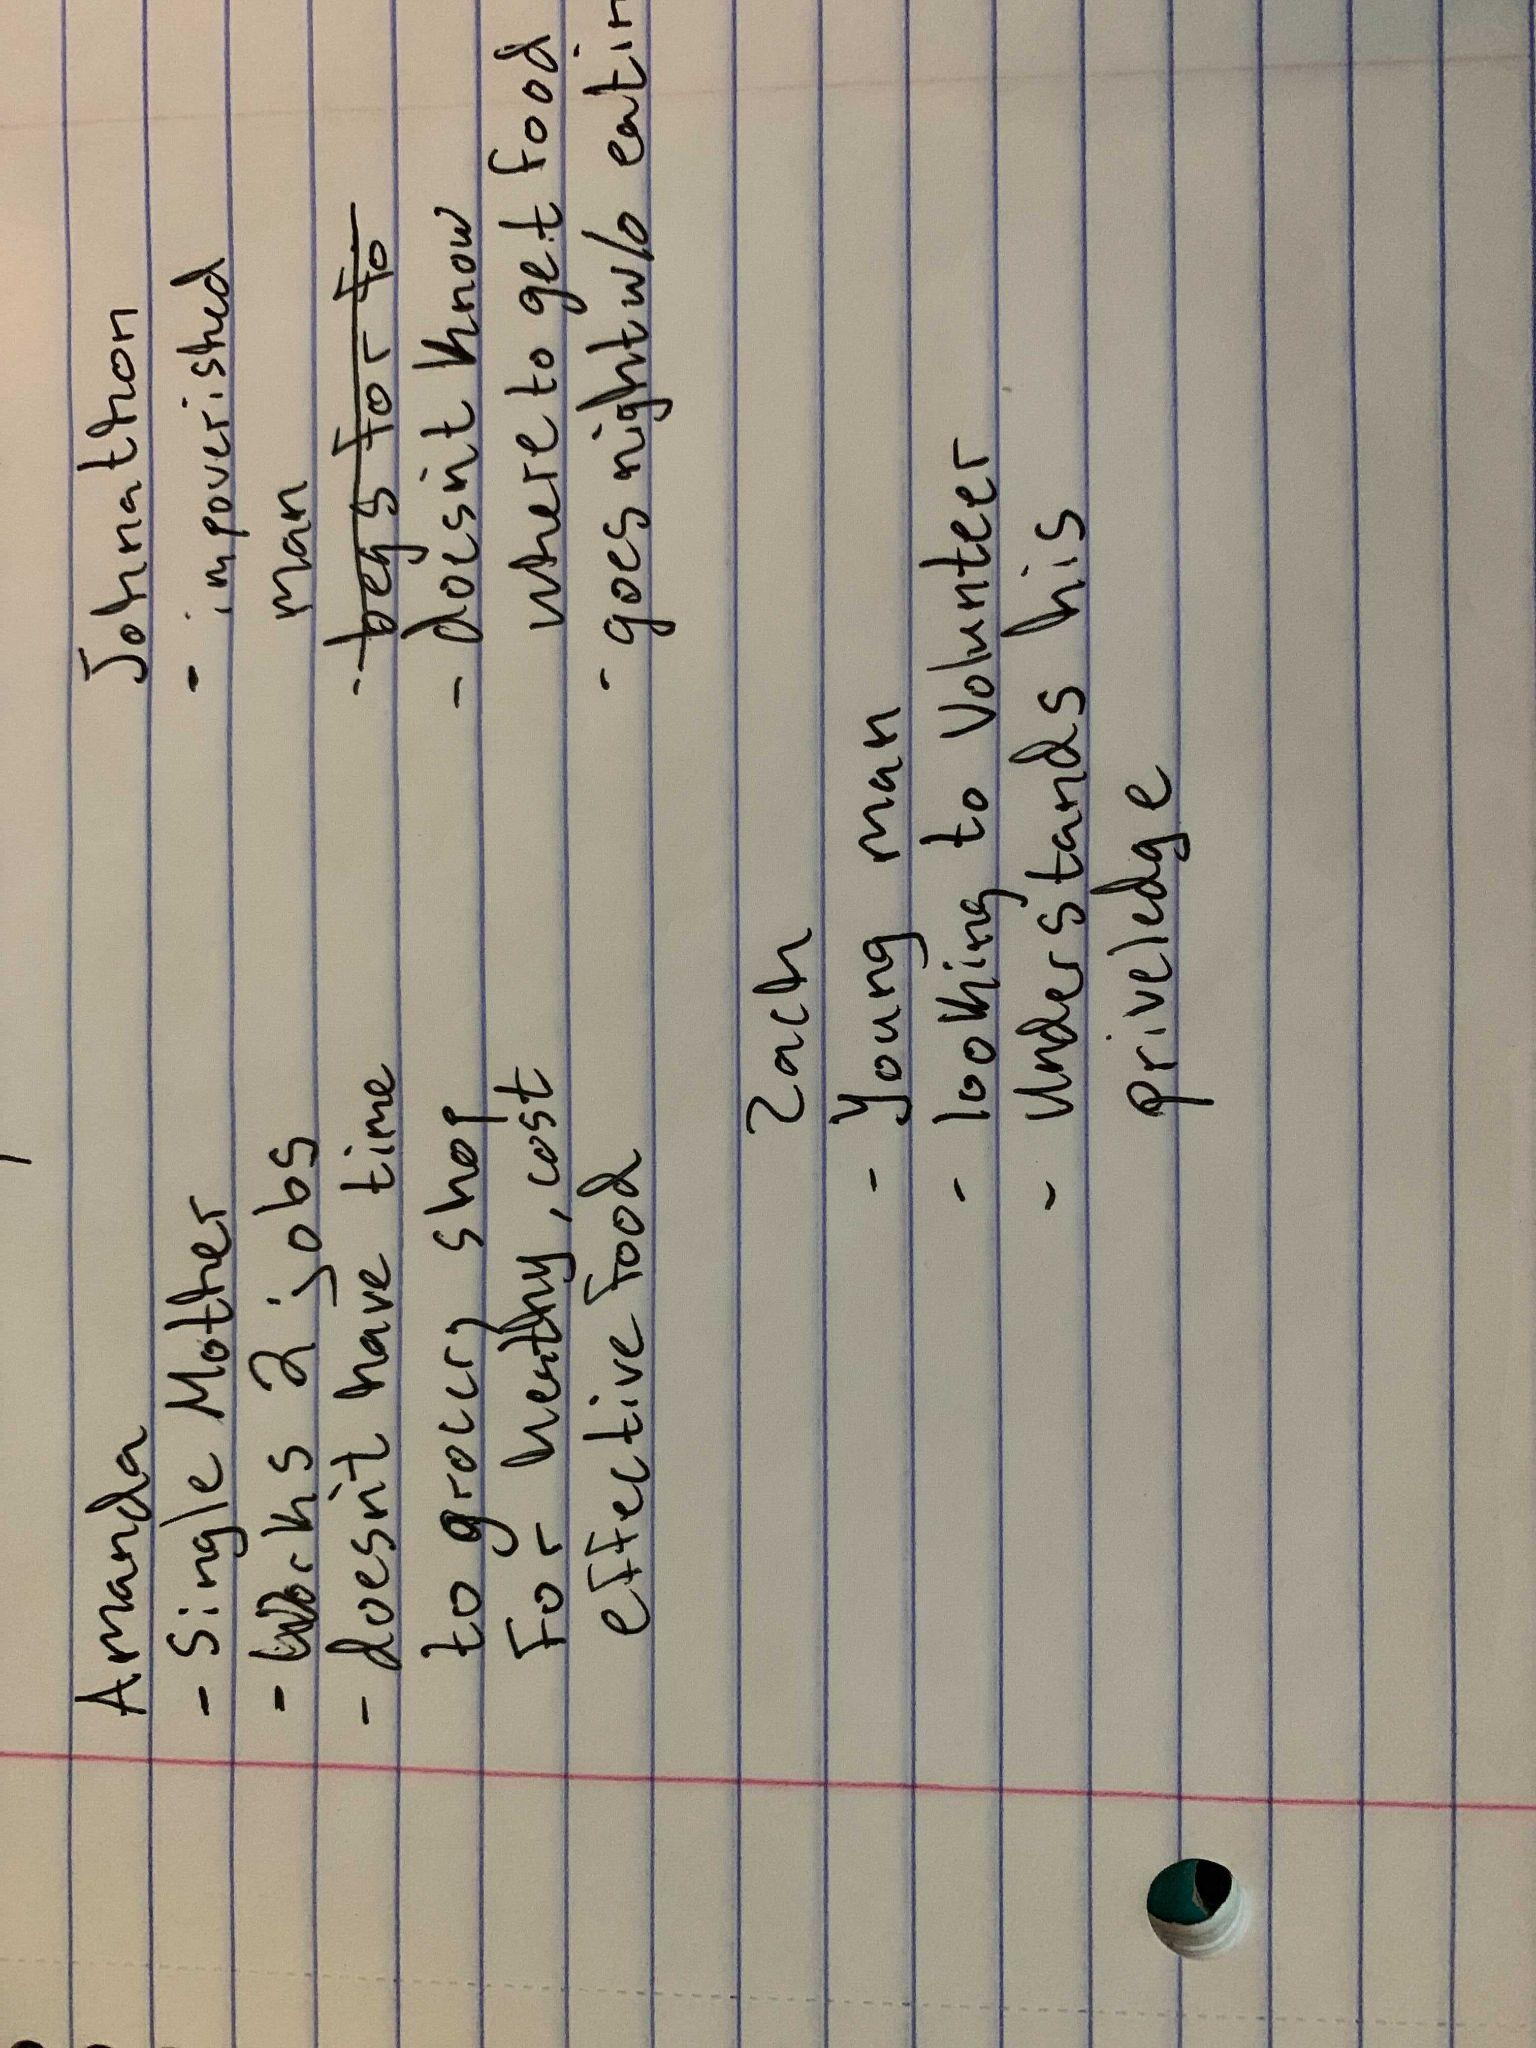 Amanda
- Single Mother
- Works 2 jobs
- doesn't have time
to grocry shop
for healthy, cost
effective food
Johnathon
- impoverished
man
- begs for fo
- doesn't know
where to get food
- goes night w/o eatin
Zach
- Young man
- looking to Volunteer
- Understands his
priveledge